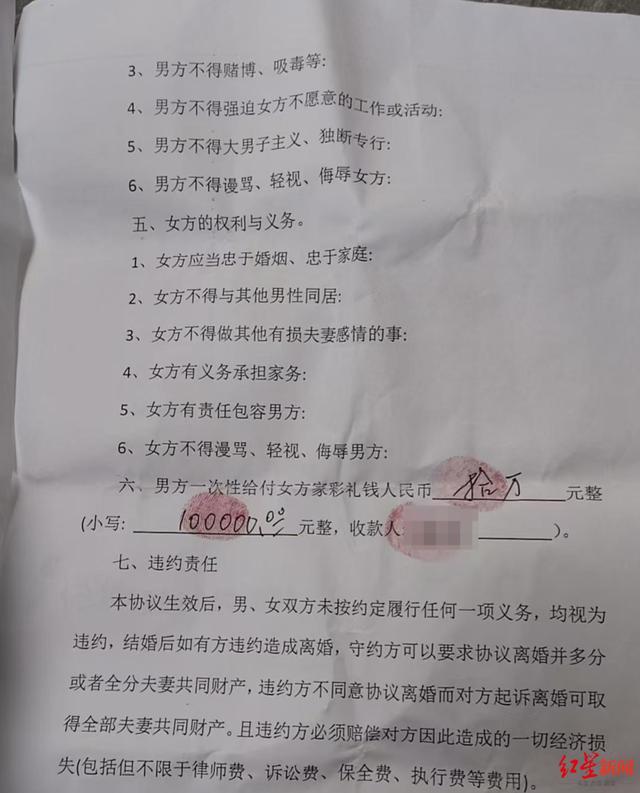 3、男方不得赌博、吸毒等:
4、男方不得强迫女方不愿意的工作或活动:
5、男方不得大男子主义、独断专行:
6、男方不得谩骂、轻视、侮辱女方:
五、女方的权利与义务。
1、女方应当忠于婚烟、忠于家庭:
2、女方不得与其他男性同居:
3、女方不得做其他有损夫妻感情的事:
4、女方有义务承担家务:
5、女方有责任包容男方:
6、女方不得谩骂、轻视、侮辱男方:
六、男方一次性给付女方家彩礼钱人民币 拾万 元整
(小写: 100000.00 元整，收款人 )。
七、违约责任
本协议生效后，男、女双方未按约定履行任何一项义务，均视为
违约，结婚后如有方违约造成离婚，守约方可以要求协议离婚并多分
或者全分夫妻共同财产，违约方不同意协议离婚而对方起诉离婚可取
得全部夫妻共同财产。且违约方必须赔偿对方因此造成的一切经济损
失(包括但不限于律师费、诉讼费、保全费、执行费等费用)。
红星新闻